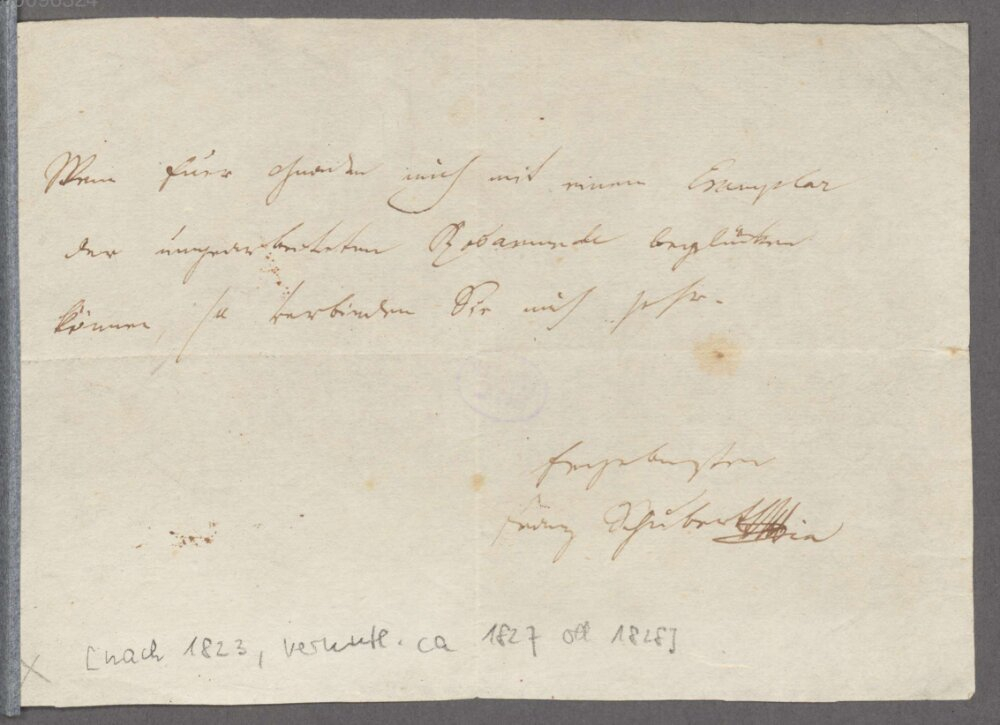 Wenn Euer Gnaden mich mit einem Exemplar
der umgearbeiteten Rosamunde beglücken
können, so verbinden Sie mich sehr.
Ergebenster
Franz Schubert
[nach 1823, vermutl. ca 1827 od 1828]